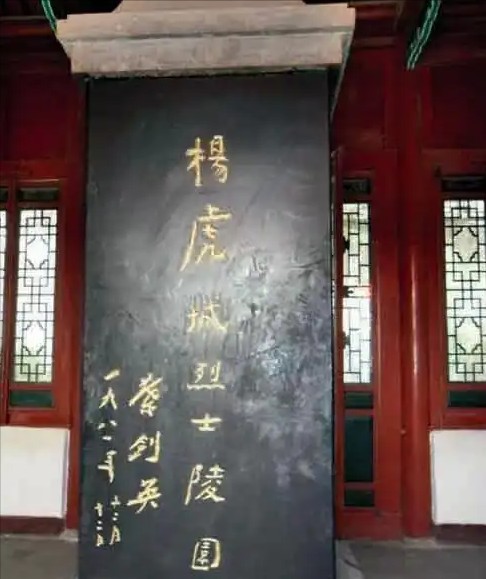 楊虎城烈士陵園
葉剑英
一九八一年
十二月
十二日